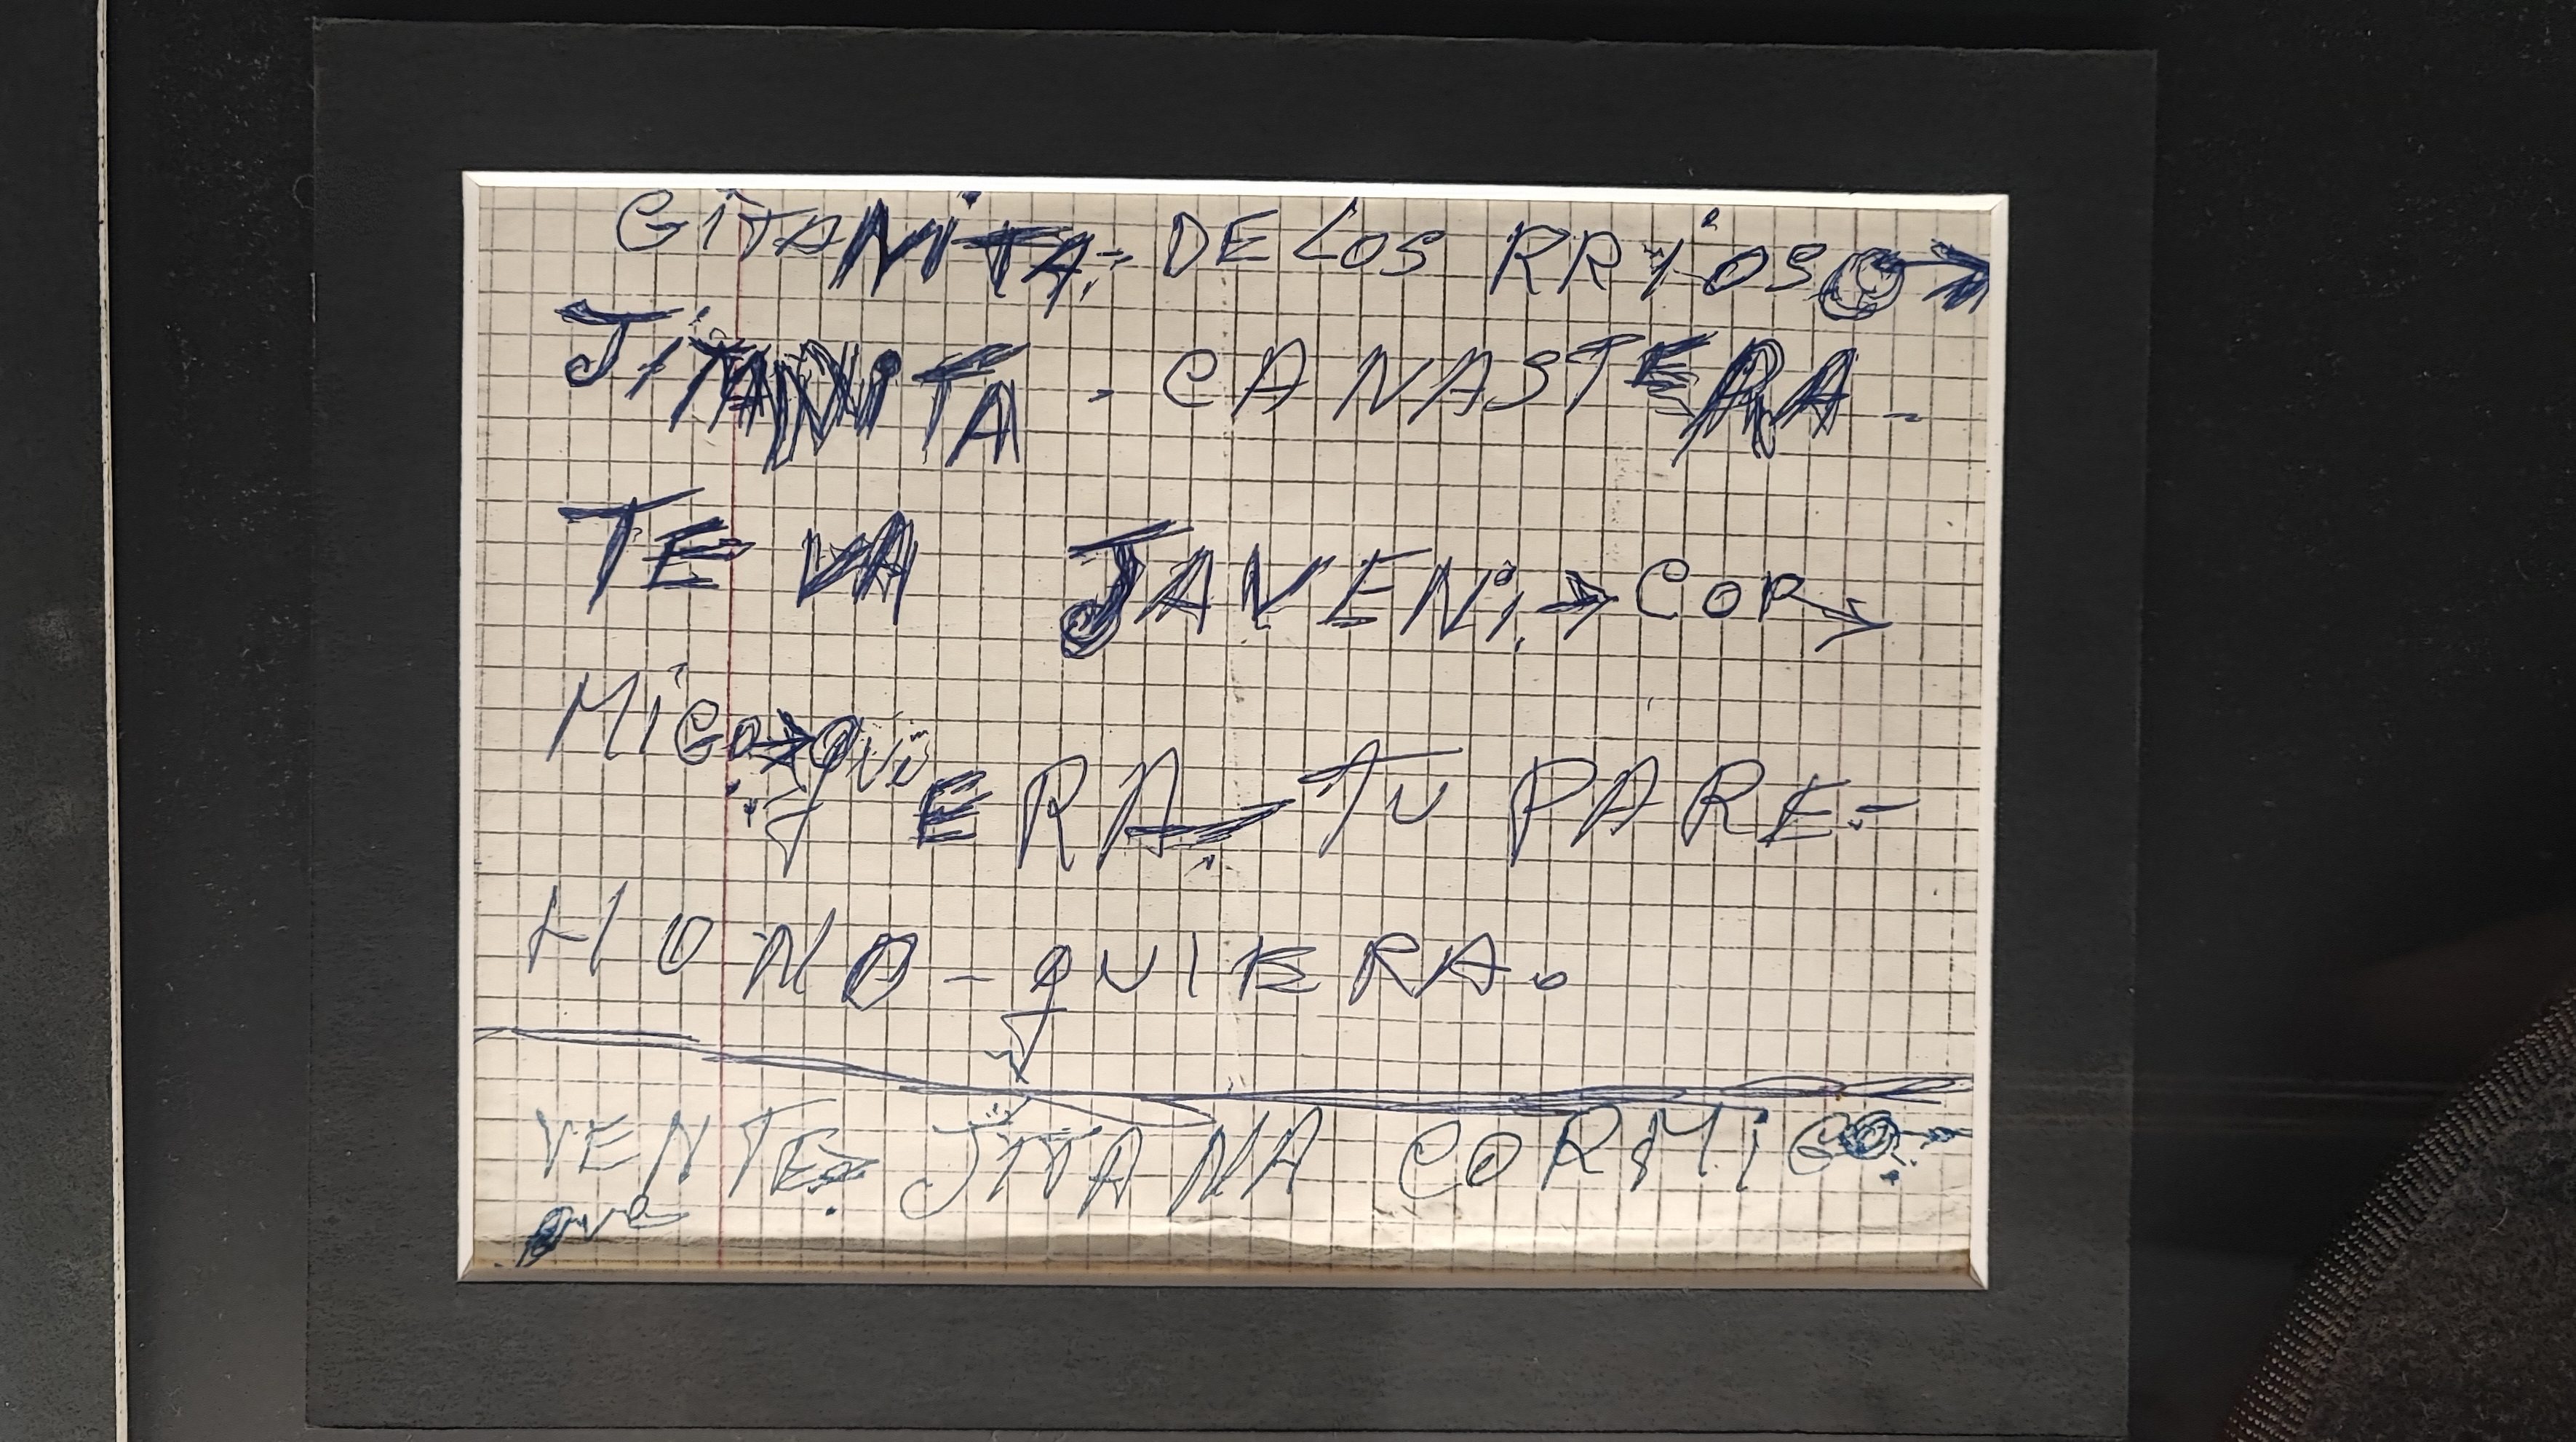 GiTANiTA- DE LOS RRiOS
JiTANiTA - CANASTERA -
TE VA JAVENi COR
MiGO QUi
ERA TU PARE-
HO NO - QUIERA.
VENTE JiTANA CORMiGO
QUE